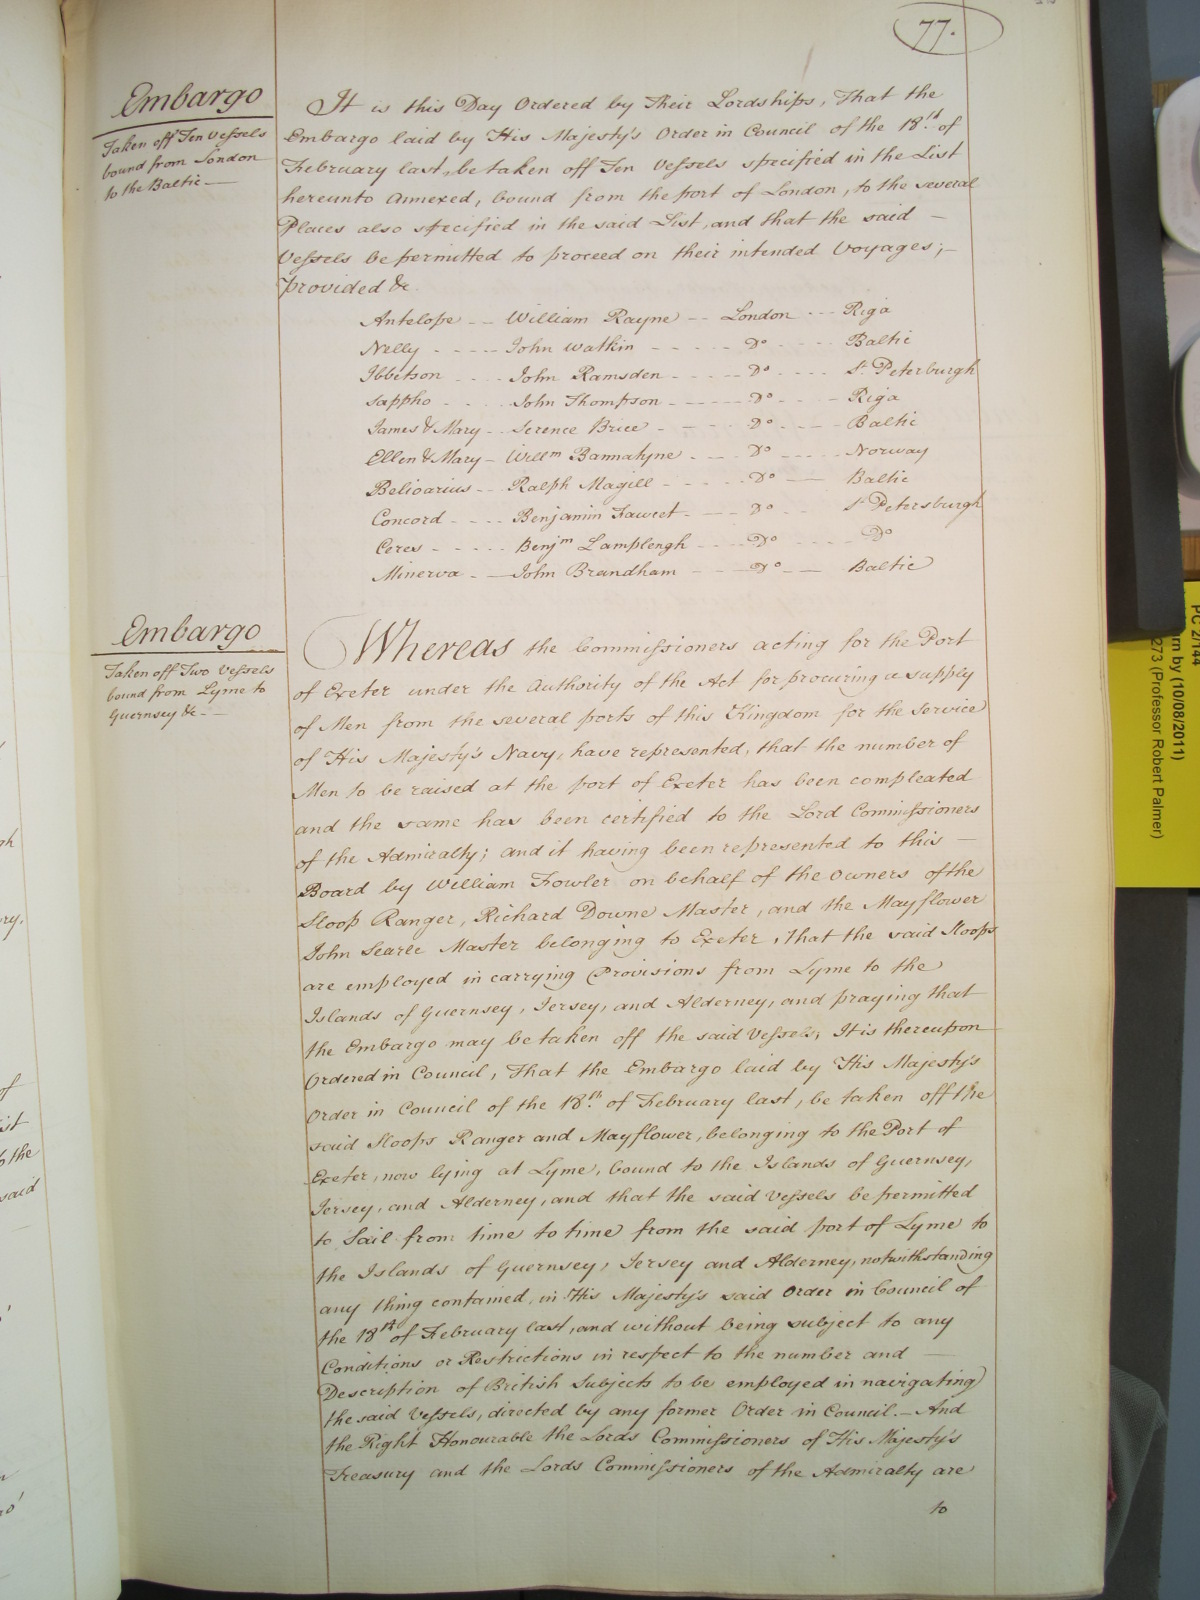 77.
Embargo
Taken off Ten Vessels
bound from London
to the Baltic —
It is this Day Ordered by Their Lordships, That the
Embargo laid by His Majesty's Order in Council of the 18th of
February last, be taken off Ten Vessels specified in the List
hereunto Annexed, bound from the port of London, to the several
Places also specified in the said List, and that the said —
Vessels be permitted to proceed on their intended Voyages; —
provided &c
Antelope -- William Rayne -- London --- Riga
Nelly ----- John Watkin ----- Do ---- Baltic
Ibbetson ---- John Ramsden ----- Do ---- St Peterburgh
Sappho ---- John Thompson ------ Do --- Riga
James & Mary -- Terence Brice ---- Do ---- Baltic
Ellen & Mary - Willm Bannatyne --- Do ----- Norway
Belisarius -- Ralph Magill ----- Do --- Baltic
Concord ---- Benjamin Fawcet --- Do -- St Petersburgh
Ceres ----- Benjm Lamplengh ---- Do ---- Do
Minerva -- John Brandham ---- Do -- Baltic
Embargo
Taken off Two Vessels
bound from Lyme to
Guernsey &c —
Whereas the Commissioners acting for the Port
of Exeter under the Authority of the Act for procuring a supply
of Men from the several ports of this Kingdom for the Service
of His Majesty's Navy, have represented, that the number of
Men to be raised at the port of Exeter has been compleated
and the same has been certified to the Lord Commissioners
of the Admiralty; and it having been represented to this —
Board by William Fowler on behalf of the Owners of the
Sloop Ranger, Richard Downe Master, and the Mayflower
John Searle Master belonging to Exeter, that the said Sloops
are employed in carrying Provisions from Lyme to the
Islands of Guernsey, Jersey, and Alderney, and praying that
the Embargo may be taken off the said Vessels; It is thereupon
Ordered in Council, That the Embargo laid by His Majesty's
Order in Council of the 18th of February last, be taken off the
said Sloops Ranger and Mayflower, belonging to the Port of
Exeter, now lying at Lyme, bound to the Islands of Guernsey,
Jersey, and Alderney, and that the said Vessels be permitted
to Sail from time to time from the said port of Lyme to
the Islands of Guernsey, Jersey and Alderney, notwithstanding
any thing contained, in His Majesty's said Order in Council of
the 18th of February last, and without being subject to any
Conditions or Restrictions in respect to the number and —
Description of British Subjects to be employed in navigating
the said Vessels, directed by any former Order in Council. — And
the Right Honourable the Lords Commissioners of His Majesty's
Treasury and the Lords Commissioners of the Admiralty are
to
PC 2/144
rn by (10/08/2011)
273 (Professor Robert Palmer)
of
to the
said